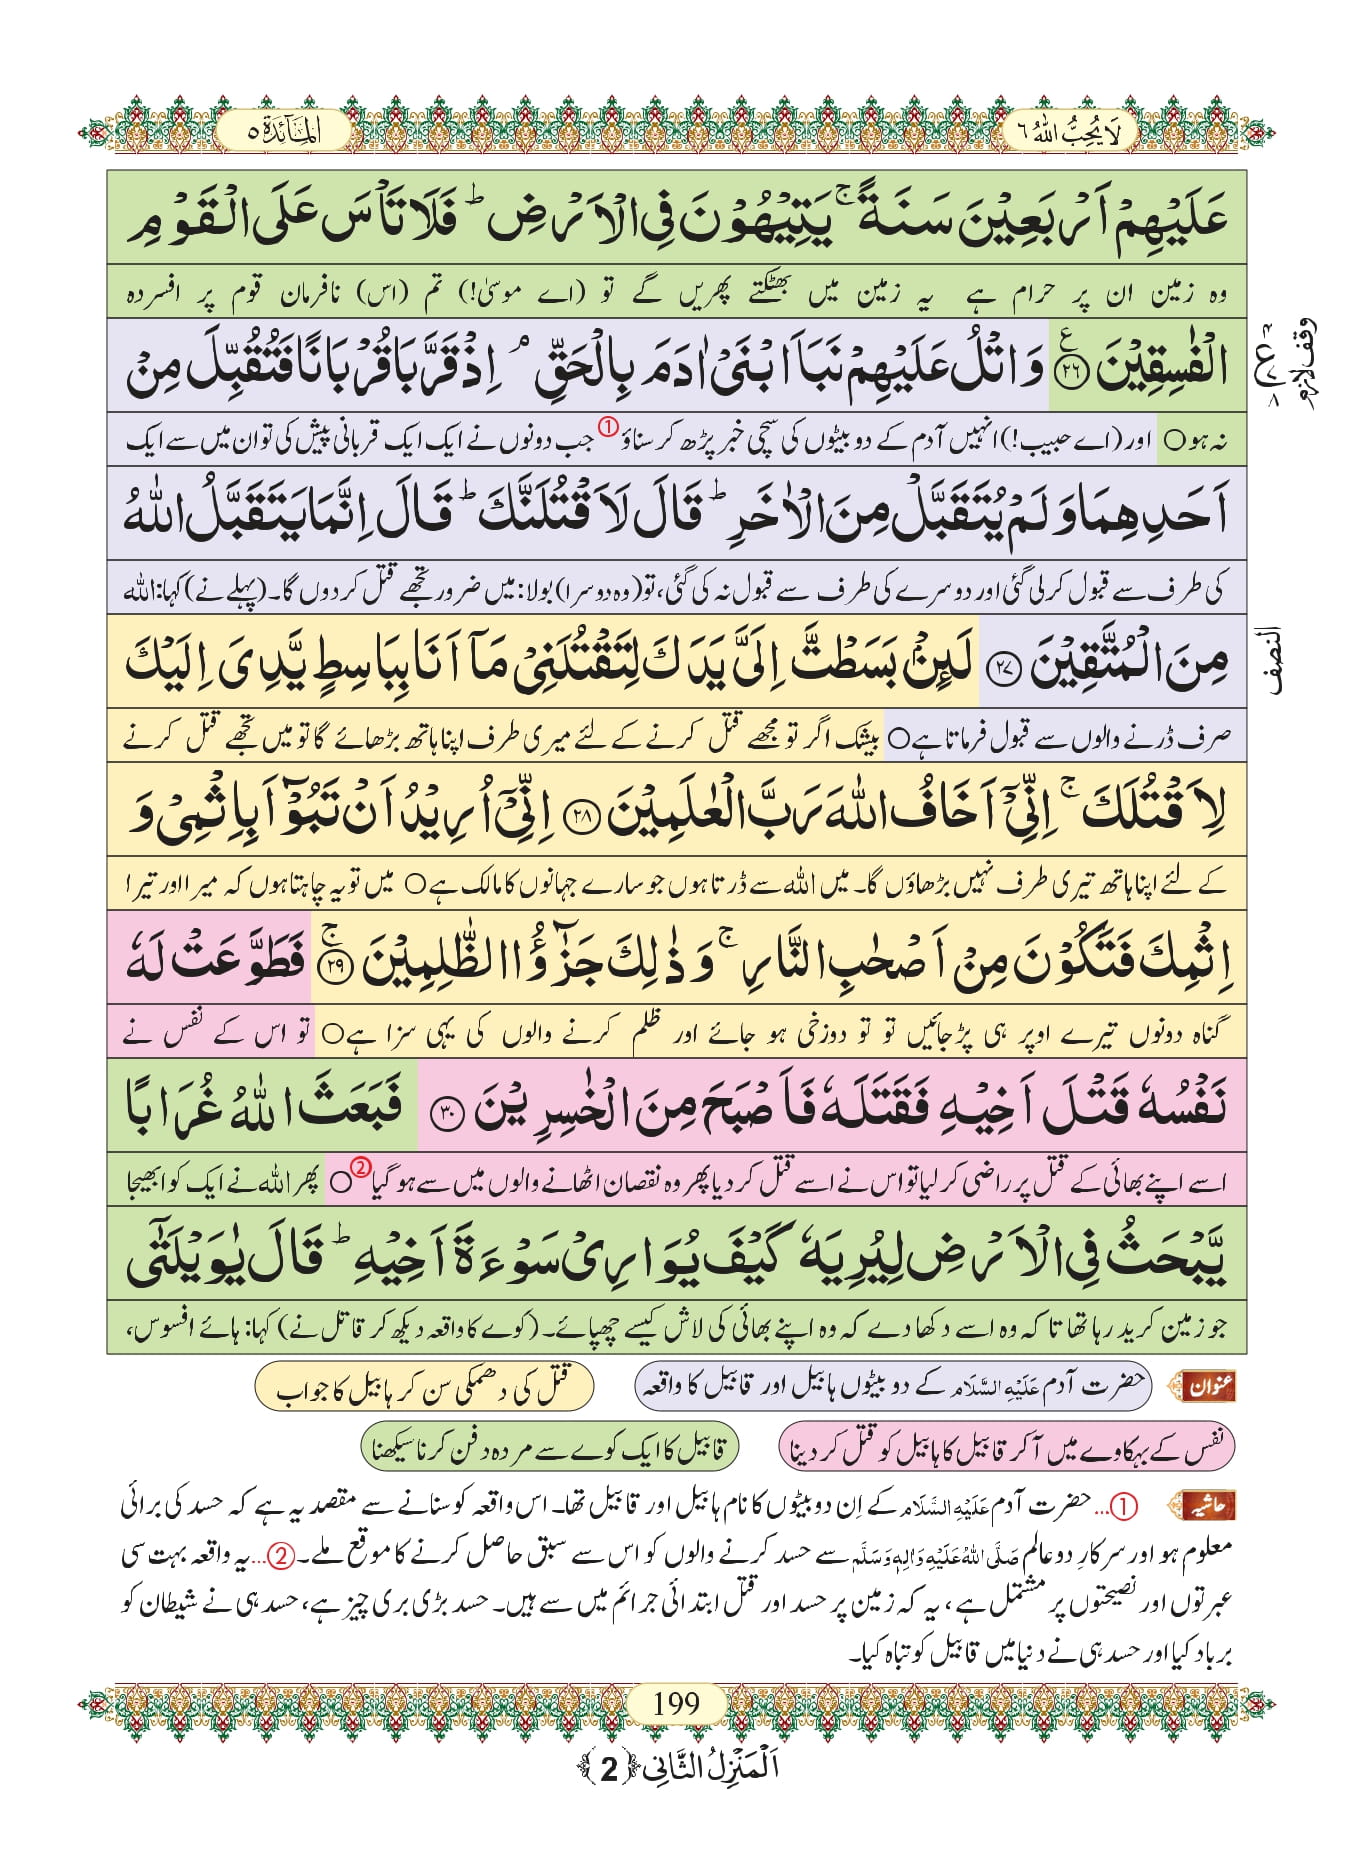 لَا يُحِبُّ اللّٰهُ ٦
اَلْمَآئِدَة ٥
عَلَيْهِمْ اَرْبَعِيْنَ سَنَةً ۚ يَتِيْهُوْنَ فِي الْاَرْضِ ؕ فَلَا تَاْسَ عَلَى الْقَوْمِ
وہ زمین ان پر حرام ہے یہ زمین میں بھٹکتے پھریں گے تو (اے موسیٰ!) تم (اس) نافرمان قوم پر افسردہ
الْفٰسِقِيْنَ ﴿۲۶﴾ وَ اتْلُ عَلَيْهِمْ نَبَاَ ابْنَيْ اٰدَمَ بِالْحَقِّ ۘ اِذْ قَرَّبَا قُرْبَانًا فَتُقُبِّلَ مِنْ
وقف لازم
نہ ہو○ اور (اے حبیب!) انہیں آدم کے دو بیٹوں کی سچی خبر پڑھ کر سناؤ① جب دونوں نے ایک ایک قربانی پیش کی تو ان میں سے ایک
اَحَدِهِمَا وَ لَمْ يُتَقَبَّلْ مِنَ الْاٰخَرِ ؕ قَالَ لَاَقْتُلَنَّكَ ؕ قَالَ اِنَّمَا يَتَقَبَّلُ اللّٰهُ
کی طرف سے قبول کرلی گئی اور دوسرے کی طرف سے قبول نہ کی گئی، تو (وہ دوسرا) بولا: میں ضرور تجھے قتل کردوں گا۔ (پہلے نے) کہا: اللہ
مِنَ الْمُتَّقِيْنَ ﴿۲۷﴾ لَئِنْۢ بَسَطْتَّ اِلَيَّ يَدَكَ لِتَقْتُلَنِيْ مَاۤ اَنَا بِبَاسِطٍ يَّدِيَ اِلَيْكَ
النصف
صرف ڈرنے والوں سے قبول فرماتا ہے○ بیشک اگر تو مجھے قتل کرنے کے لئے میری طرف اپنا ہاتھ بڑھائے گا تو میں تجھے قتل کرنے
لِاَقْتُلَكَ ۚ اِنِّيْۤ اَخَافُ اللّٰهَ رَبَّ الْعٰلَمِيْنَ ﴿۲۸﴾ اِنِّيْۤ اُرِيْدُ اَنْ تَبُوْٓاَ بِاِثْمِيْ وَ
کے لئے اپنا ہاتھ تیری طرف نہیں بڑھاؤں گا۔ میں اللہ سے ڈرتا ہوں جو سارے جہانوں کا مالک ہے○ میں تو یہ چاہتا ہوں کہ میرا اور تیرا
اِثْمِكَ فَتَكُوْنَ مِنْ اَصْحٰبِ النَّارِ ۚ وَ ذٰلِكَ جَزٰٓؤُا الظّٰلِمِيْنَ ﴿۲۹﴾ۚ فَطَوَّعَتْ لَهٗ
گناہ دونوں تیرے اوپر ہی پڑجائیں تو تو دوزخی ہو جائے اور ظلم کرنے والوں کی یہی سزا ہے○ تو اس کے نفس نے
نَفْسُهٗ قَتْلَ اَخِيْهِ فَقَتَلَهٗ فَاَصْبَحَ مِنَ الْخٰسِرِيْنَ ﴿۳۰﴾ فَبَعَثَ اللّٰهُ غُرَابًا
اسے اپنے بھائی کے قتل پر راضی کرلیا تو اس نے اسے قتل کردیا پھر وہ نقصان اٹھانے والوں میں سے ہوگیا②○ پھر اللہ نے ایک کوا بھیجا
يَّبْحَثُ فِي الْاَرْضِ لِيُرِيَهٗ كَيْفَ يُوَارِيْ سَوْءَةَ اَخِيْهِ ؕ قَالَ يٰوَيْلَتٰۤى
جو زمین کرید رہا تھا تاکہ وہ اسے دکھا دے کہ وہ اپنے بھائی کی لاش کیسے چھپائے۔ (کوے کا واقعہ دیکھ کر قاتل نے) کہا: ہائے افسوس،
عنوان حضرت آدم عَلَیْهِ السَّلَام کے دو بیٹوں ہابیل اور قابیل کا واقعہ قتل کی دھمکی سن کر ہابیل کا جواب
نفس کے بہکاوے میں آکر قابیل کا ہابیل کو قتل کردینا قابیل کا ایک کوے سے مردہ دفن کرنا سیکھنا
حاشیہ ①… حضرت آدم عَلَیْهِ السَّلَام کے اِن دو بیٹوں کا نام ہابیل اور قابیل تھا۔ اس واقعہ کو سنانے سے مقصد یہ ہے کہ حسد کی برائی
معلوم ہو اور سرکارِ دو عالم صَلَّی اللّٰهُ عَلَیْهِ وَاٰلِهٖ وَسَلَّم سے حسد کرنے والوں کو اس سے سبق حاصل کرنے کا موقع ملے۔ ②… یہ واقعہ بہت سی
عبرتوں اور نصیحتوں پر مشتمل ہے، یہ کہ زمین پر حسد اور قتل ابتدائی جرائم میں سے ہیں۔ حسد بڑی بری چیز ہے، حسد ہی نے شیطان کو
برباد کیا اور حسد ہی نے دنیا میں قابیل کو تباہ کیا۔
199
اَلْمَنْزِلُ الثَّانِی ﴿2﴾